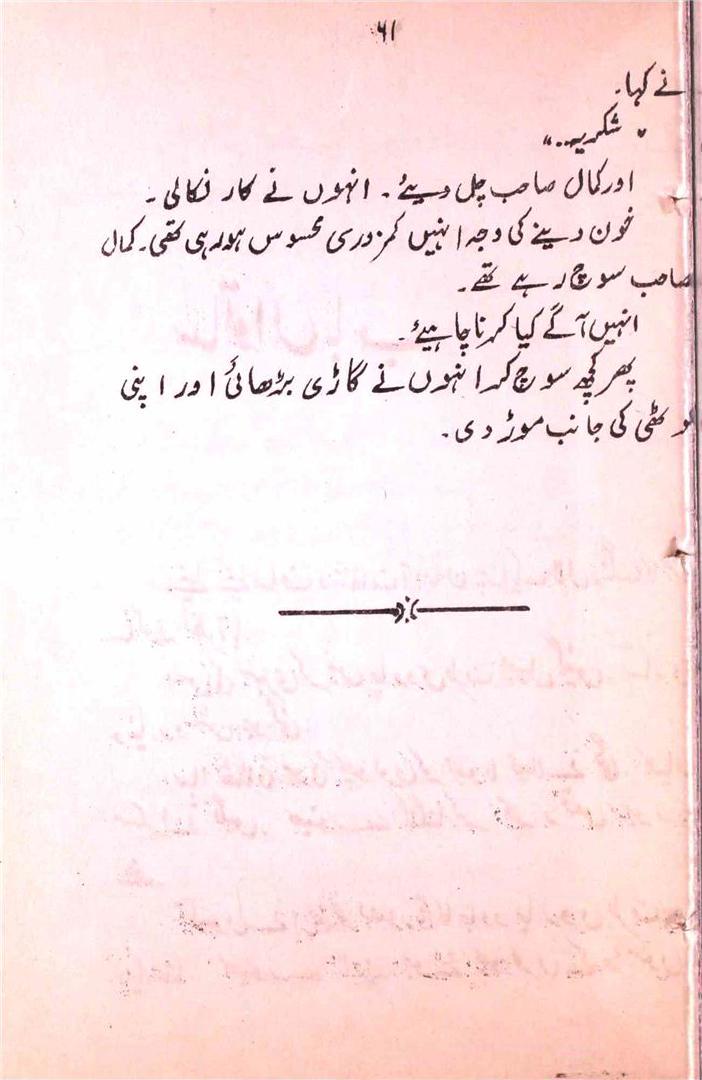 ۶۱
نے کہا۔
" شکریہ۔۔"
اور کمال صاحب چل دیئے۔ انہوں نے کار نکالی۔
خون دینے کی وجہ انہیں کمزوری محسوس ہو رہی تھی۔ کمال
صاحب سوچ رہے تھے۔
انہیں آگے کیا کرنا چاہیئے۔
پھر کچھ سوچ کر انہوں نے گاڑی بڑھائی اور اپنی
کوٹھی کی جانب موڑ دی۔